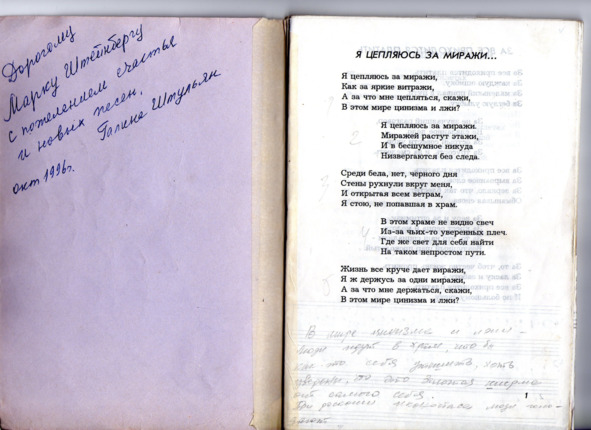 Дорогому
Марку Штейнбергу
с пожеланием счастья
и новых песен,
Галина Штульян
окт 1996г.
Я ЦЕПЛЯЮСЬ ЗА МИРАЖИ...
Я цепляюсь за миражи,
Как за яркие витражи,
А за что мне цепляться, скажи,
В этом мире цинизма и лжи?
1
Я цепляюсь за миражи.
Миражей растут этажи,
И в бесшумное никуда
Низвергаются без следа.
2
Среди бела, нет, чёрного дня
Стены рухнули вкруг меня,
И открытая всем ветрам,
Я стою, не попавшая в храм.
3
В этом храме не видно свеч
Из-за чьих-то уверенных плеч.
Где же свет для себя найти
На таком непростом пути.
4
Жизнь все круче дает виражи,
Я ж держусь за одни миражи,
А за что мне держаться, скажи,
В этом мире цинизма и лжи?
5
В мире цинизма и лжи -
люди идут в храм, что бы
как то себя утешить, хоть
это
самого себя.
люди
1